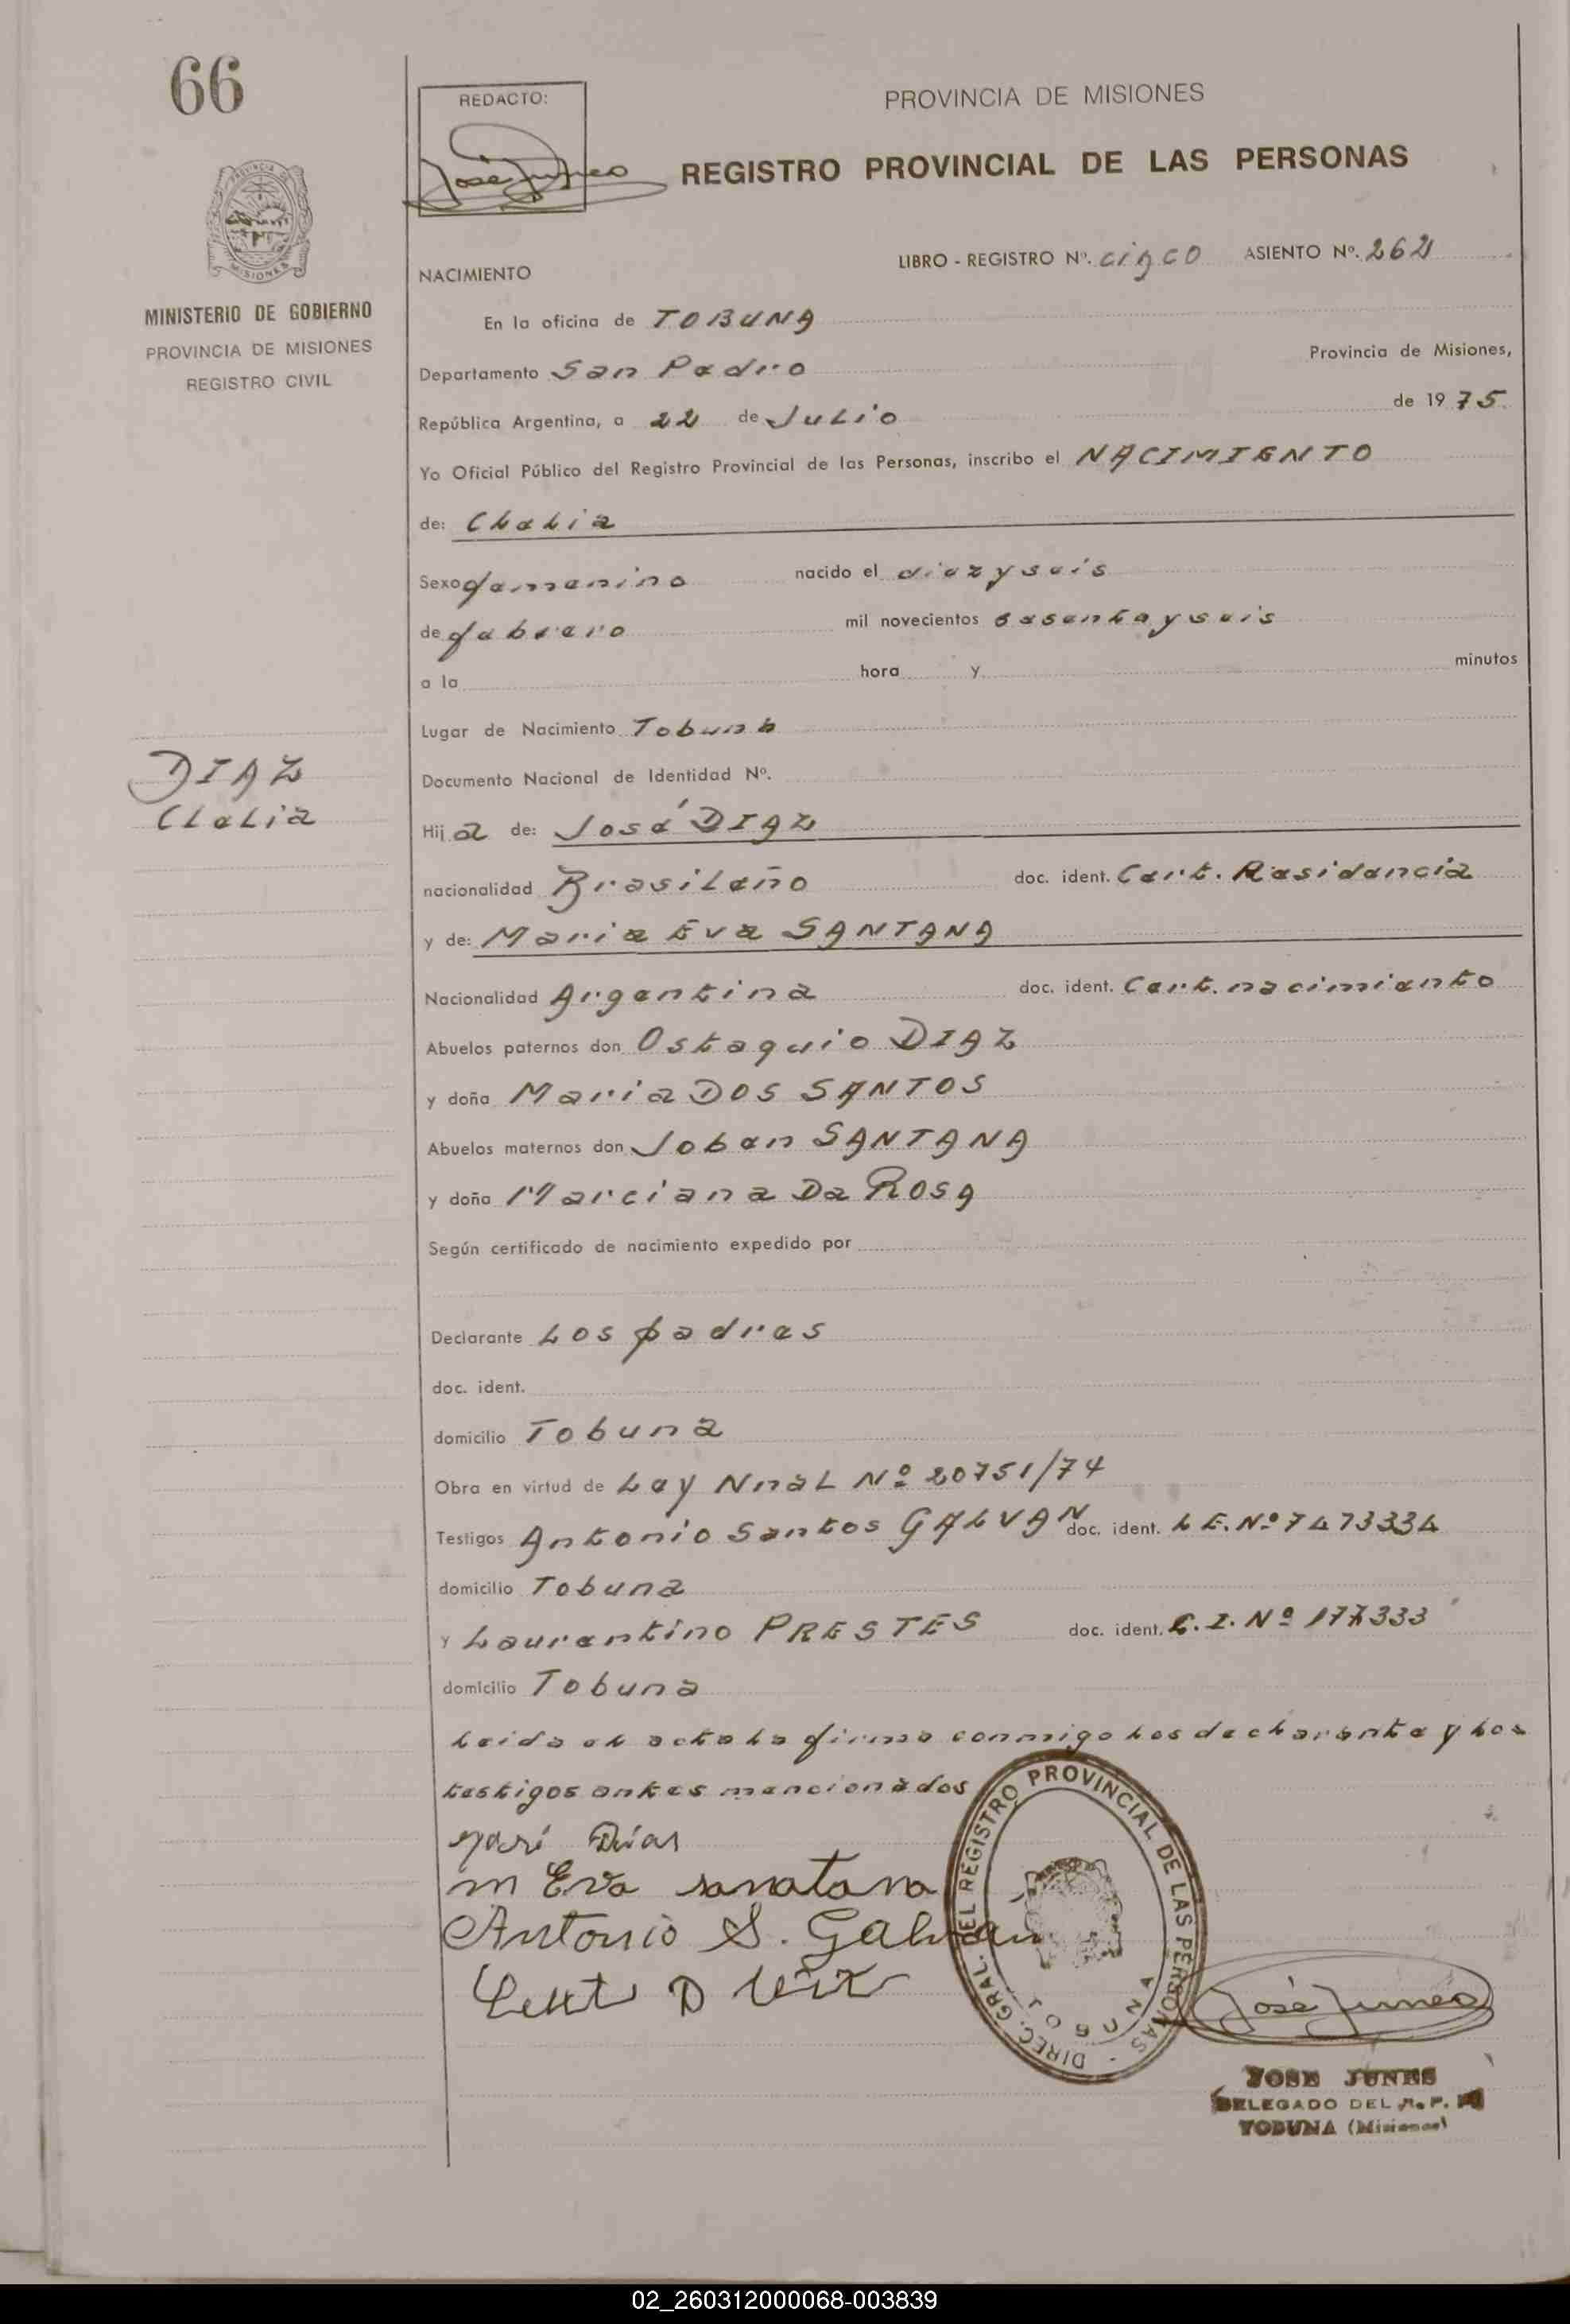 66
REDACTO:
PROVINCIA DE MISIONES
REGISTRO PROVINCIAL DE LAS PERSONAS
MINISTERIO DE GOBIERNO
PROVINCIA DE MISIONES
REGISTRO CIVIL
LIBRO - REGISTRO Nº. cinco ASIENTO Nº. 262
NACIMIENTO
En la oficina de TOBUNA
Departamento San Pedro Provincia de Misiones,
República Argentina, a 22 de Julio de 1975
Yo Oficial Público del Registro Provincial de las Personas, inscribo el NACIMIENTO
de: Clelia
Sexo femenino nacido el diezyseis
de febrero mil novecientos sesentayseis
a la hora y minutos
Lugar de Nacimiento Tobuna
Documento Nacional de Identidad Nº.
DIAZ
Clelia
Hija de: José DIAZ
nacionalidad Brasileño doc. ident. Cert. Residencia
y de: Maria Eva SANTANA
Nacionalidad Argentina doc. ident. Cert. nacimiento
Abuelos paternos don Ostaquio DIAZ
y doña Maria DOS SANTOS
Abuelos maternos don Joben SANTANA
y doña Marciana Da ROSA
Según certificado de nacimiento expedido por
Declarante Los padres
doc. ident.
domicilio Tobuna
Obra en virtud de Ley Nnal Nº 20751/74
Testigos Antonio Santos GALVAN doc. ident. L E. Nº 7473334
domicilio Tobuna
y Laurentino PRESTES doc. ident. C. I. Nº 333
domicilio Tobuna
Leida el acta la firma conmigo los declarante y los
testigos antes mencionados
José Dias
m Eva sanatana
Antonio S. Galvan
DIREC. GRAL. DEL REGISTRO PROVINCIAL DE LAS PERSONAS - TOBUNA
José Junes
JOSE JUNES
DELEGADO DEL R. P.
TOBUNA (Misiones)
02_260312000068-003839